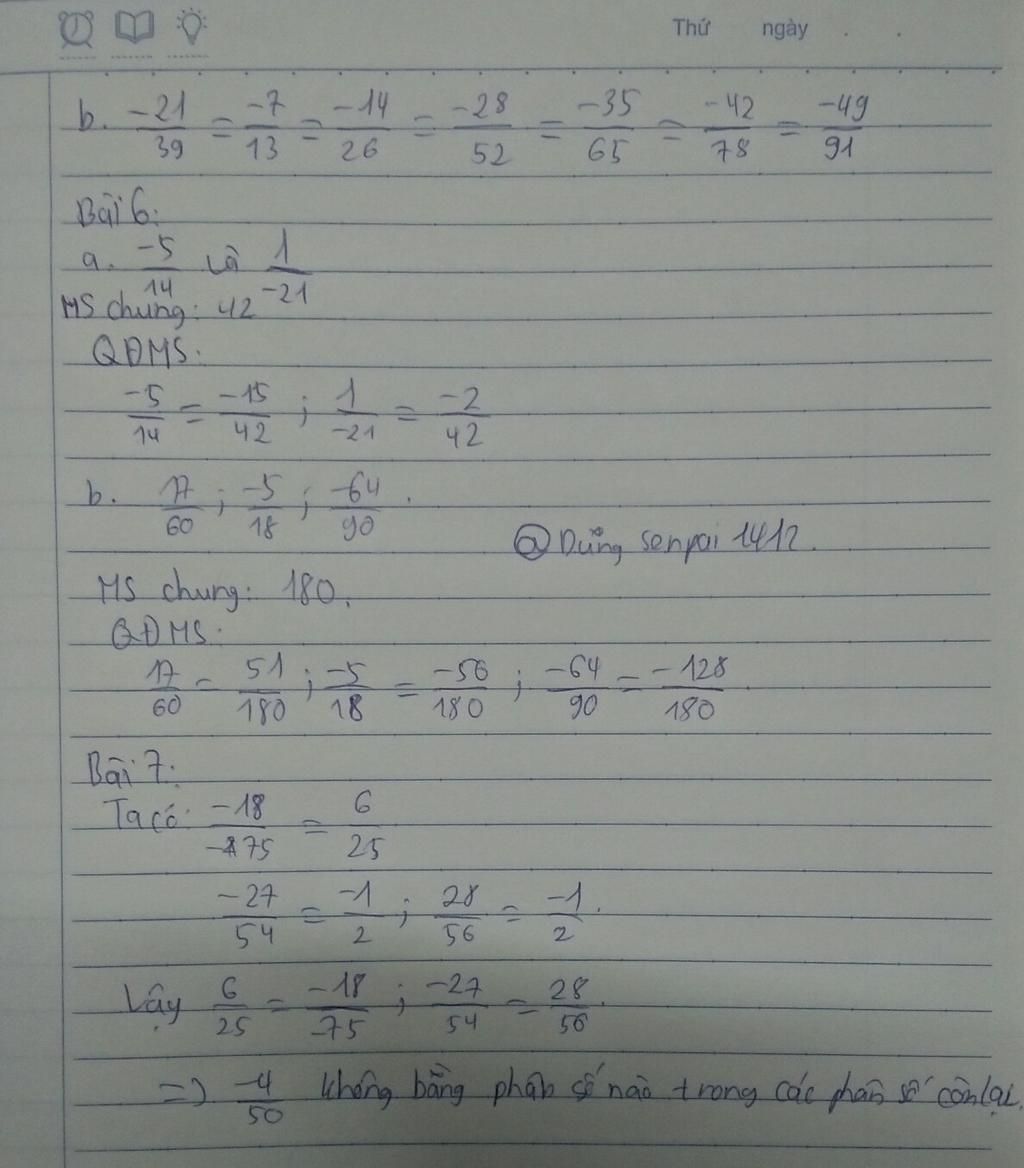 Thứ ngày . .
b. -21/39 = -7/13 = -14/26 = -28/52 = -35/65 = -42/78 = -49/91
Bài 6:
a. -5/14 và 1/-21
MS chung: 42
QĐMS:
-5/14 = -15/42 ; 1/-21 = -2/42
b. 17/60 ; -5/18 ; -64/90 .
@Dũng senpai 1412.
MS chung: 180.
QĐMS:
17/60 = 51/180 ; -5/18 = -56/180 ; -64/90 = -128/180
Bài 7:
Ta có: -18/-75 = 6/25
-27/54 = -1/2 ; 28/56 = -1/2 .
Vậy 6/25 = -18/-75 ; -27/54 = 28/56 .
=> -4/50 không bằng phân số nào trong các phân số còn lại.